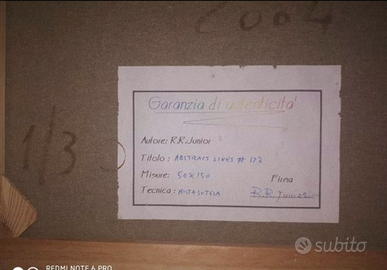 2004
1/3
Garanzia di autenticita'
Autore: R.R. Junior
Titolo: ABSTRACT LINES # 172
Misure: 50x150
Firma
Tecnica: MISTA SU TELA
R.R. Junior
subito
REDMI NOTE 6 PRO